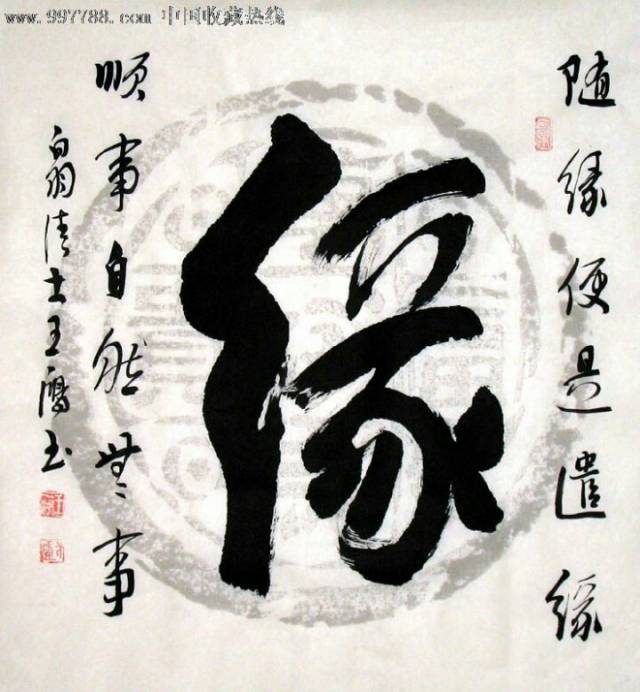 www.997788.com 中国收藏热线
随缘便是遣缘
缘
顺事自然無事
清士王